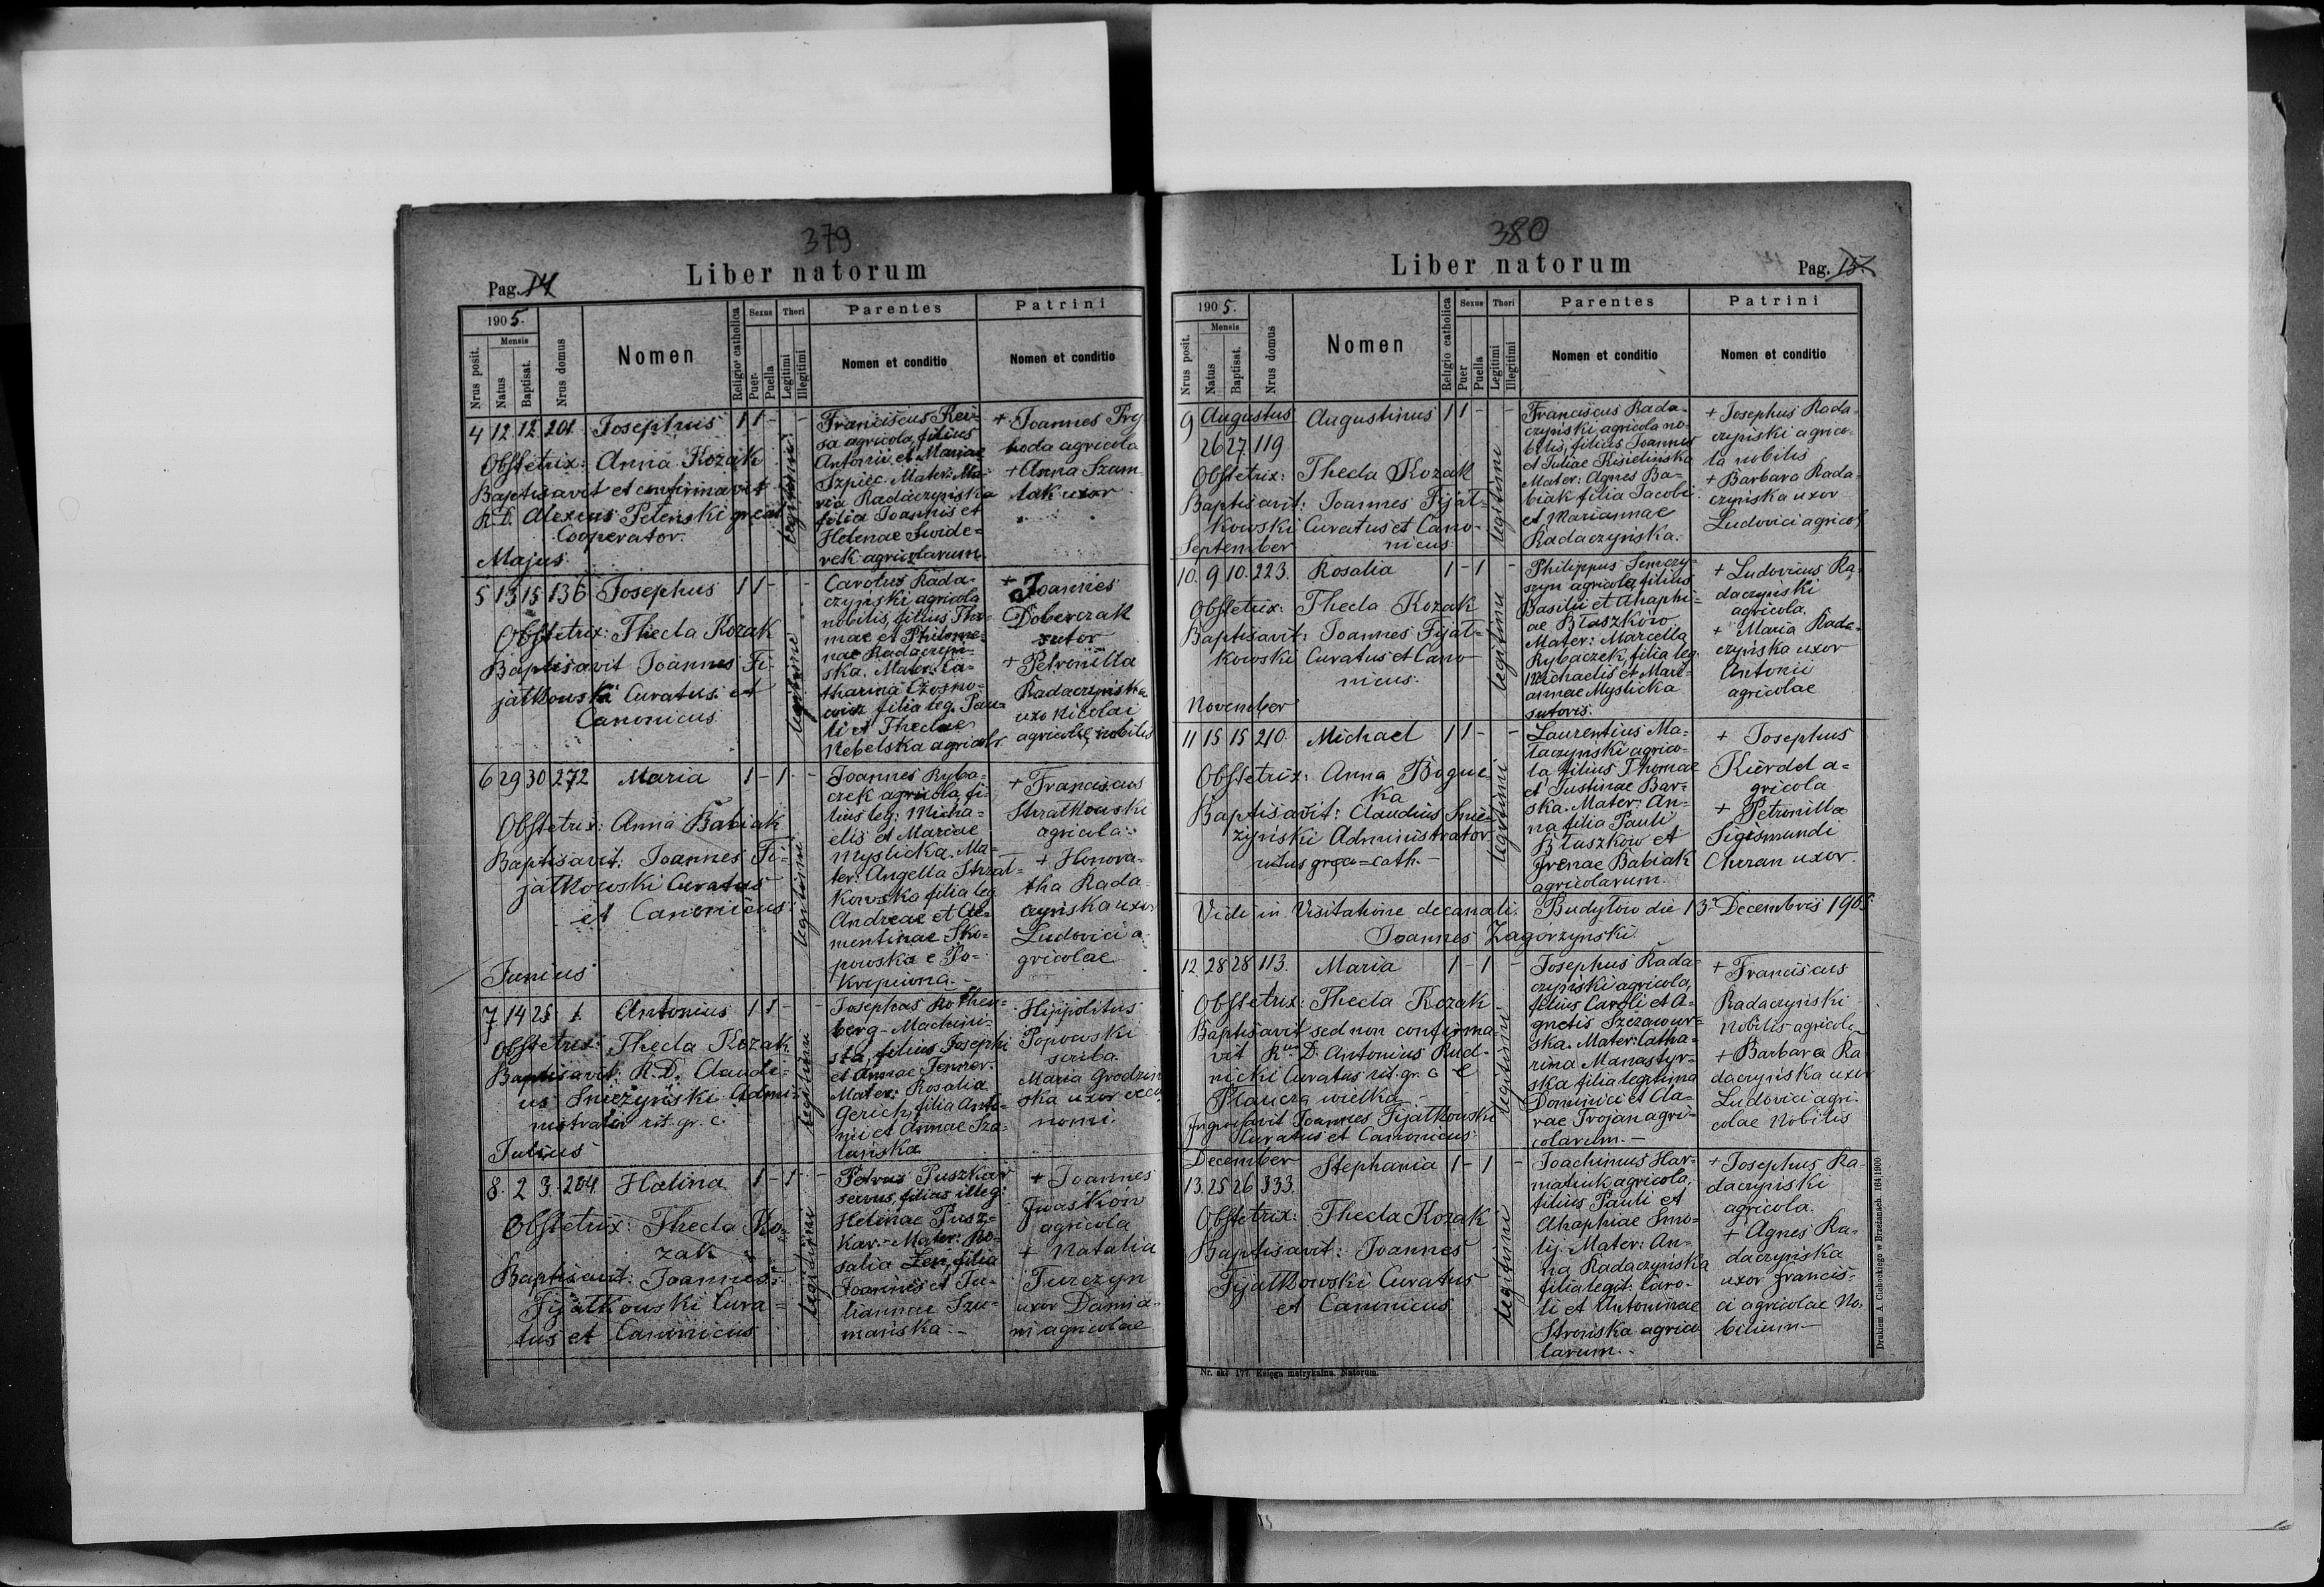 379
Pag. 14
Liber natorum
1905.
Mensis
Nrus posit.
Natus
Baptisat.
Nrus domus
Nomen
Religio catholica
Sexus
Puer
Puella
Thori
Legitimi
Illegitimi
Parentes
Nomen et conditio
Patrini
Nomen et conditio
4 12 12 201 Josephus 1 1 - -
Obstetrix: Anna Kozak
Baptisavit et confirmavit
R.D. Alexius Petenski gr. cat.
Cooperator.
legitimi
Franciscus Rei-
sa agricola, filius
Antonii et Mariae
Szpiec. Mater: Ma-
ria Radaczyńska
filia Joannis et
Helenae Swide-
rek agricolarum.
+ Joannes Pry
boda agricola
+ Anna Szam
lak uxor
Majus
5 13 15 136 Josephus 1 1 - -
Obstetrix: Thecla Kozak
Baptisavit Joannes Fi-
jałkowski Curatus et
Canonicus
legitimi
Carolus Rada-
czyński agricola
nobilis, filius Tho-
mae et Philome-
nae Radaczyń-
ska. Mater: Ca-
tharina Czosno-
wicz filia leg. Pau-
li et Theclae
Nebelska agricol.
+ Joannes
Doberczak
sutor
+ Petronilla
Radaczyńska
uxo Nicolai
agricolae nobilis
6 29 30 272 Maria 1 - 1 -
Obstetrix: Anna Babiak
Baptisavit: Joannes Fi-
jałkowski Curatus
et Canonicus
legitimi
Joannes Ryba-
czek agricola, fi-
lius leg. Micha-
elis et Mariae
Myslicka. Ma-
ter: Angella Strzał-
kowska filia leg.
Andreae et Cle-
mentinae Sko-
powska e Po-
kropiwna.-
+ Franciscus
Strzałkowski
agricola
+ Honora-
tha Rada-
czyńska uxor
Ludovici a-
gricolae
Junius
7 14 25 1 Antonius 1 1 - -
Obstetrix: Thecla Kozak
Baptisavit: R.D. Claudi-
us Śnieżyński Admi-
nistrator rit. gr. c.
legitimi
Josephus Rothen-
berg - Machini-
sta, filius Josephi
et Annae
Mater: Rosalia
Gerich, filia Anto-
nii et Annae Sza-
lańska
Hippolitus
Popowski
scriba
Maria Grodzin
ska uxor eco-
nomi.
Julius
8. 2 3. 204 Halina 1 - 1 -
Obstetrix: Thecla Ko-
zak
Baptisavit: Joannes
Fijałkowski Cura-
tus et Canonicus
legitimi
Petrus Puszkar
servus, filius illeg.
Helenae Pusz-
kar.- Mater: Ro-
salia Zen, filia
Joannis et Ju-
liannae Szu-
mańska.-
+ Joannes
Iwaśków
agricola
+ Natalia
Turczyn
uxor Damia-
ni agricolae
380
Liber natorum
Pag. 15
1905.
Mensis
Nrus posit.
Natus
Baptisat.
Nrus domus
Nomen
Religio catholica
Sexus
Puer
Puella
Thori
Legitimi
Illegitimi
Parentes
Nomen et conditio
Patrini
Nomen et conditio
9 Augustus Augustinus 1 1 - -
26 27 119
Obstetrix: Thecla Kozak
Baptisavit: Joannes Fijał-
kowski Curatus et Cano-
nicus
legitimi
Franciscus Rada-
czyński agricola no-
bilis, filius Joannis
et Juliae Kisielińska
Mater: Agnes Ba-
biak filia Jacobi
et Mariannae
Radaczyńska.
+ Josephus Rada-
czyński agrico-
la nobilis
+ Barbara Rada-
czyńska uxor
Ludovici agricol
September
10. 9 10. 223. Rosalia 1 - 1 -
Obstetrix: Thecla Kozak
Baptisavit: Joannes Fijał-
kowski Curatus et Cano-
nicus
legitimi
Philippus Semczy-
szyn agricola, filius
Basilii et Ahaphi-
ae Błaszków
Mater: Marcella
Rybaczek, filia leg.
Michaelis et Mari-
annae Myslicka
sutoris.
+ Ludovicus Ra-
daczyński
agricola.
+ Maria Rada-
czyńska uxor
Antonii
agricolae
November
11 15 15 210. Michael 1 1 - -
Obstetrix: Anna Bogue-
ka
Baptisavit: Claudius Śnie-
żyński Administrator
ritus græ-cath.-
legitimi
Laurentius Ma-
łaczyński agrico-
la filius Thomae
et Justinae Bar-
ska. Mater: An-
na filia Pauli
Błaszków et
Irenae Babiak
agricolarum.
+ Josephus
Kierdel a-
gricola
+ Petronilla
Sigismundi
Churan uxor.
Vidi in Visitatione decanali. Budyłów die 13. Decembris 1905
Joannes Zagórzyński
12 28 28 113. Maria 1 - 1 -
Obstetrix: Thecla Kozak
Baptisavit sed non confirma-
vit Rus D. Antonius Rud-
nicki Curatus rit. gr. c e
Płaucza wielka -
Ingrossavit Joannes Fijałkowski
Curatus et Canonicus
legitimi
Josephus Rada-
czyński agricola,
filius Caroli et A-
gnetis Szczawur-
ska. Mater: Catha-
rina Manastyr-
ska filia legitima
Dominici et Cla-
rae Trojan agri-
colarum.-
+ Franciscus
Radaczyński
Nobilis agricola
+ Barbara Ra-
daczyńska uxor
Ludovici agri-
colae Nobilis
December Stephania 1 - 1 -
13. 25 26 333.
Obstetrix: Thecla Kozak
Baptisavit: Joannes
Fijałkowski Curatus
et Canonicus
legitimi
Joachimus Har-
matiuk agricola,
filius Pauli et
Ahaphiae Smo-
lij. Mater: An-
na Radaczyńska
filia legit. Caro-
li et Antoninae
Strońska agrico-
larum.-
+ Josephus Ra-
daczyński
agricola.
+ Agnes Ra-
daczyńska
uxor Francis-
ci agricolae No-
bilium.-
Drukiem A. Cichockiego w Brzeżanach. 164|1900
Nr. skł. 177. Księga metrykalna. Natorum.